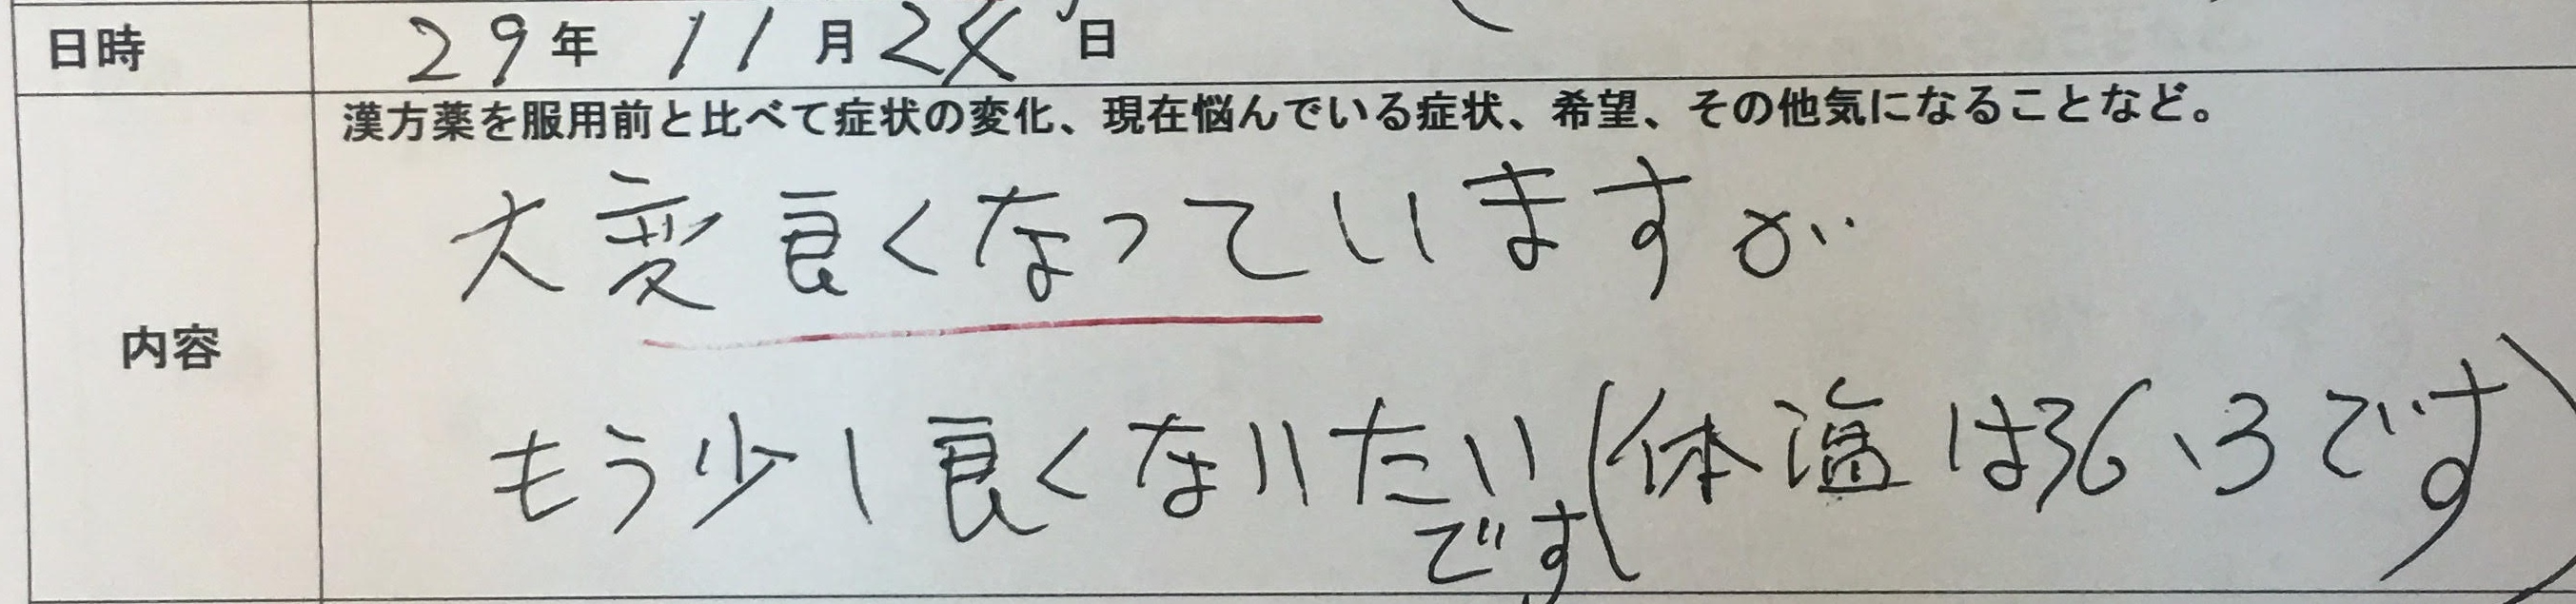 日時 29年 11月 24日
漢方薬を服用前と比べて症状の変化、現在悩んでいる症状、希望、その他気になることなど。
大変良くなっていますが
内容
もう少し良くなりたいです(体温は36、3です)